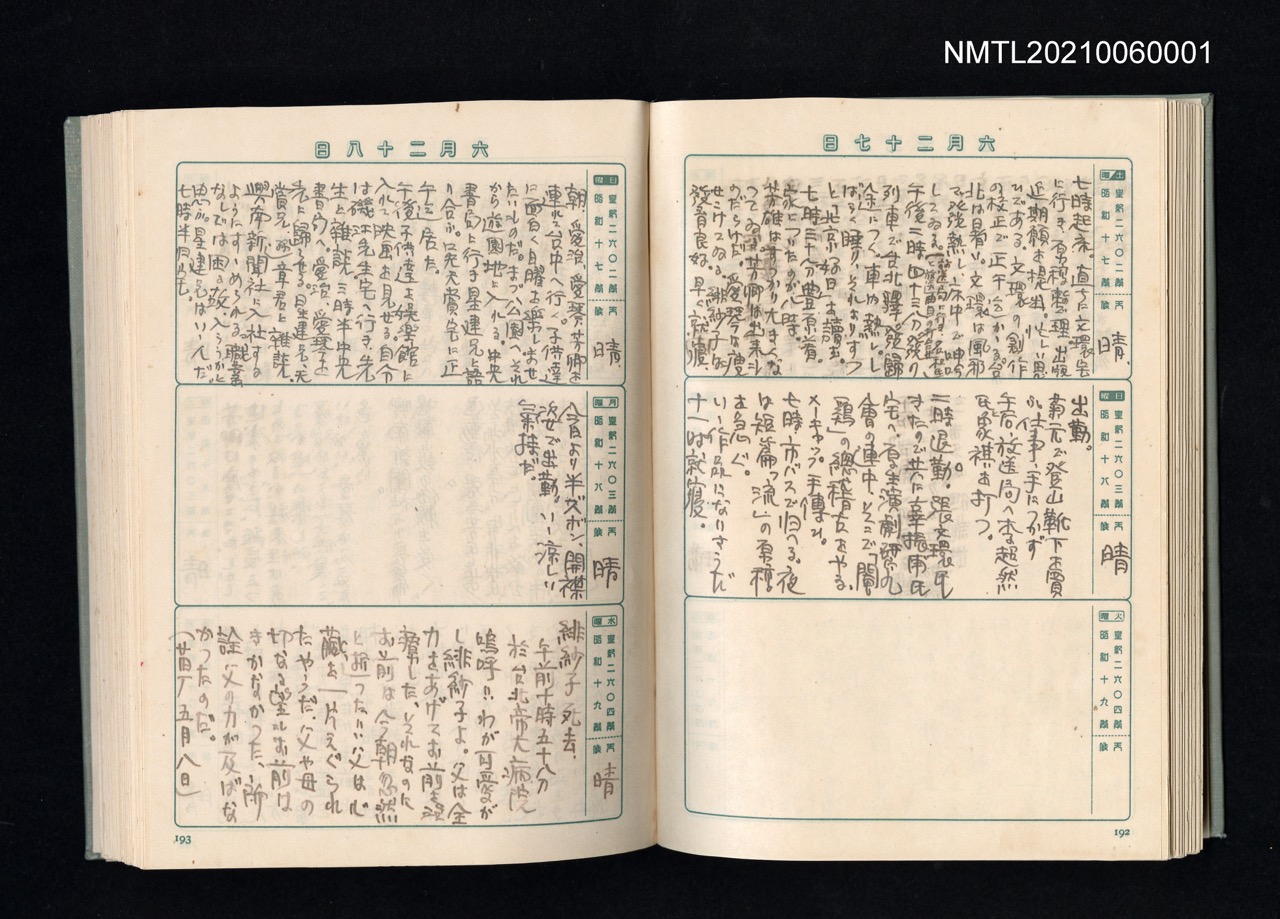 NMTL20210060001
六月二十七日
土曜 皇紀二六〇二年 昭和十七年 天候 晴
七時起床。直ちに文環宅
に行き原稿整理、出版
近期願を提出。
の校正で正午
して
午後二時四十三分発の
列車で台北駅発帰
途につく。車内熱し。し
ばらく睡り、それよりずつ
と「北京好日」を読む。
七時三十分豊原着。
家についたのが八時。
芳雄はすつかり大きくな
つてゐる。芳卿は出来斗
のだらけだ。愛琴は瘦
せこけてゐる。緋紗子は
發育良好。早く就寢。
日曜 皇紀二六〇三年 昭和十八年 天候 晴
出勤。
菊元で登山靴下を買
ふ。仕事、手につかず
午后放送局へ本を超然
氏と象棋を打つ。
二時退勤。張文環氏
きたので共に辜振甫氏
宅へ、厚生演劇研究
會の連中、そこで「閹
鶏」の總稽古をやる。
メーキャップ手傳ふ。
七時市バスで帰へる。夜
は短篇「風流」の原稿
を急ぐ。
いゝ作品になりさうだ
十一時就寢。
火曜 皇紀二六〇四年 昭和十九年 天候
192
六月二十八日
日曜 皇紀二六〇二年 昭和十七年 天候 晴
朝、愛治、愛琴、芳卿を
連れて台中へ行く。子供達
に面白く日曜を楽しませ
たいものだ。まづ公園へ、それ
から遊園地に入れる。中央
書局に行き星建兄と語
り合ふ。呉天賞宅に正
午迄居た。
午後子供達を娯楽館に
入れて映画を見せる。自分
は磯江先生宅へ行き、先
生と雑談、三時半中央
書局へ。愛治、愛琴を
先に歸らせる。星建兄、天
賞兄、遜章君と雑談。
興南新聞社に入社する
ようにすゝめられる。職業
なしでは困る故、入らうかと
思ふ。星建兄はいゝ人だ
七時半帰宅。
月曜 皇紀二六〇三年 昭和十八年 天候 晴
今日より半ズボン、開襟
姿で出勤。いゝ涼しい
氣持だ。
水曜 皇紀二六〇四年 昭和十九年 天候 晴
緋紗子死去、
午前十時五十八分
於台北帝大病院
嗚呼!!わが可愛が
し緋紗子よ。父は全
力をあげてお前を治
療した、それなのに
お前は今朝忽然
と逝つた!!父は心
臓を一片えぐられ
たやうだ、父や母の
切なる望みもお前は
きかなかつた、所
詮父の力が及ばな
かつたのだ。
(廿日丁五月八日)
193